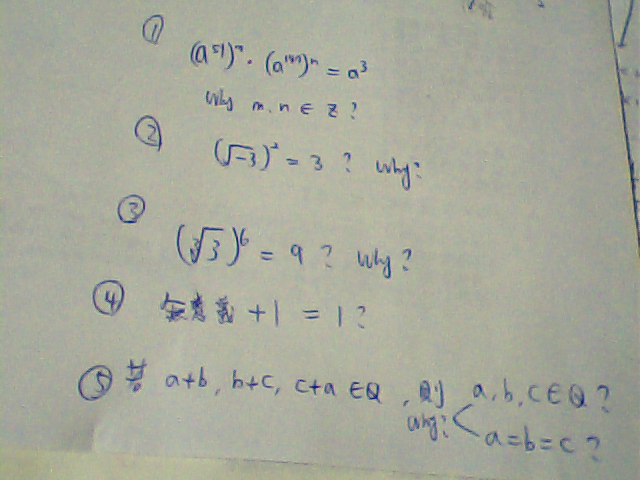 ①
(a⁵¹)ᵐ · (a¹⁸⁹)ⁿ = a³
Why m, n ∈ z ?
②
(√-3)² = 3 ? why?
③
(∛3)⁶ = 9 ? Why ?
④
無意義 + 1 = 1 ?
⑤ 若 a+b, b+c, c+a ∈ Q , 則 a, b, c ∈ Q ?
Why? < a=b=c ?